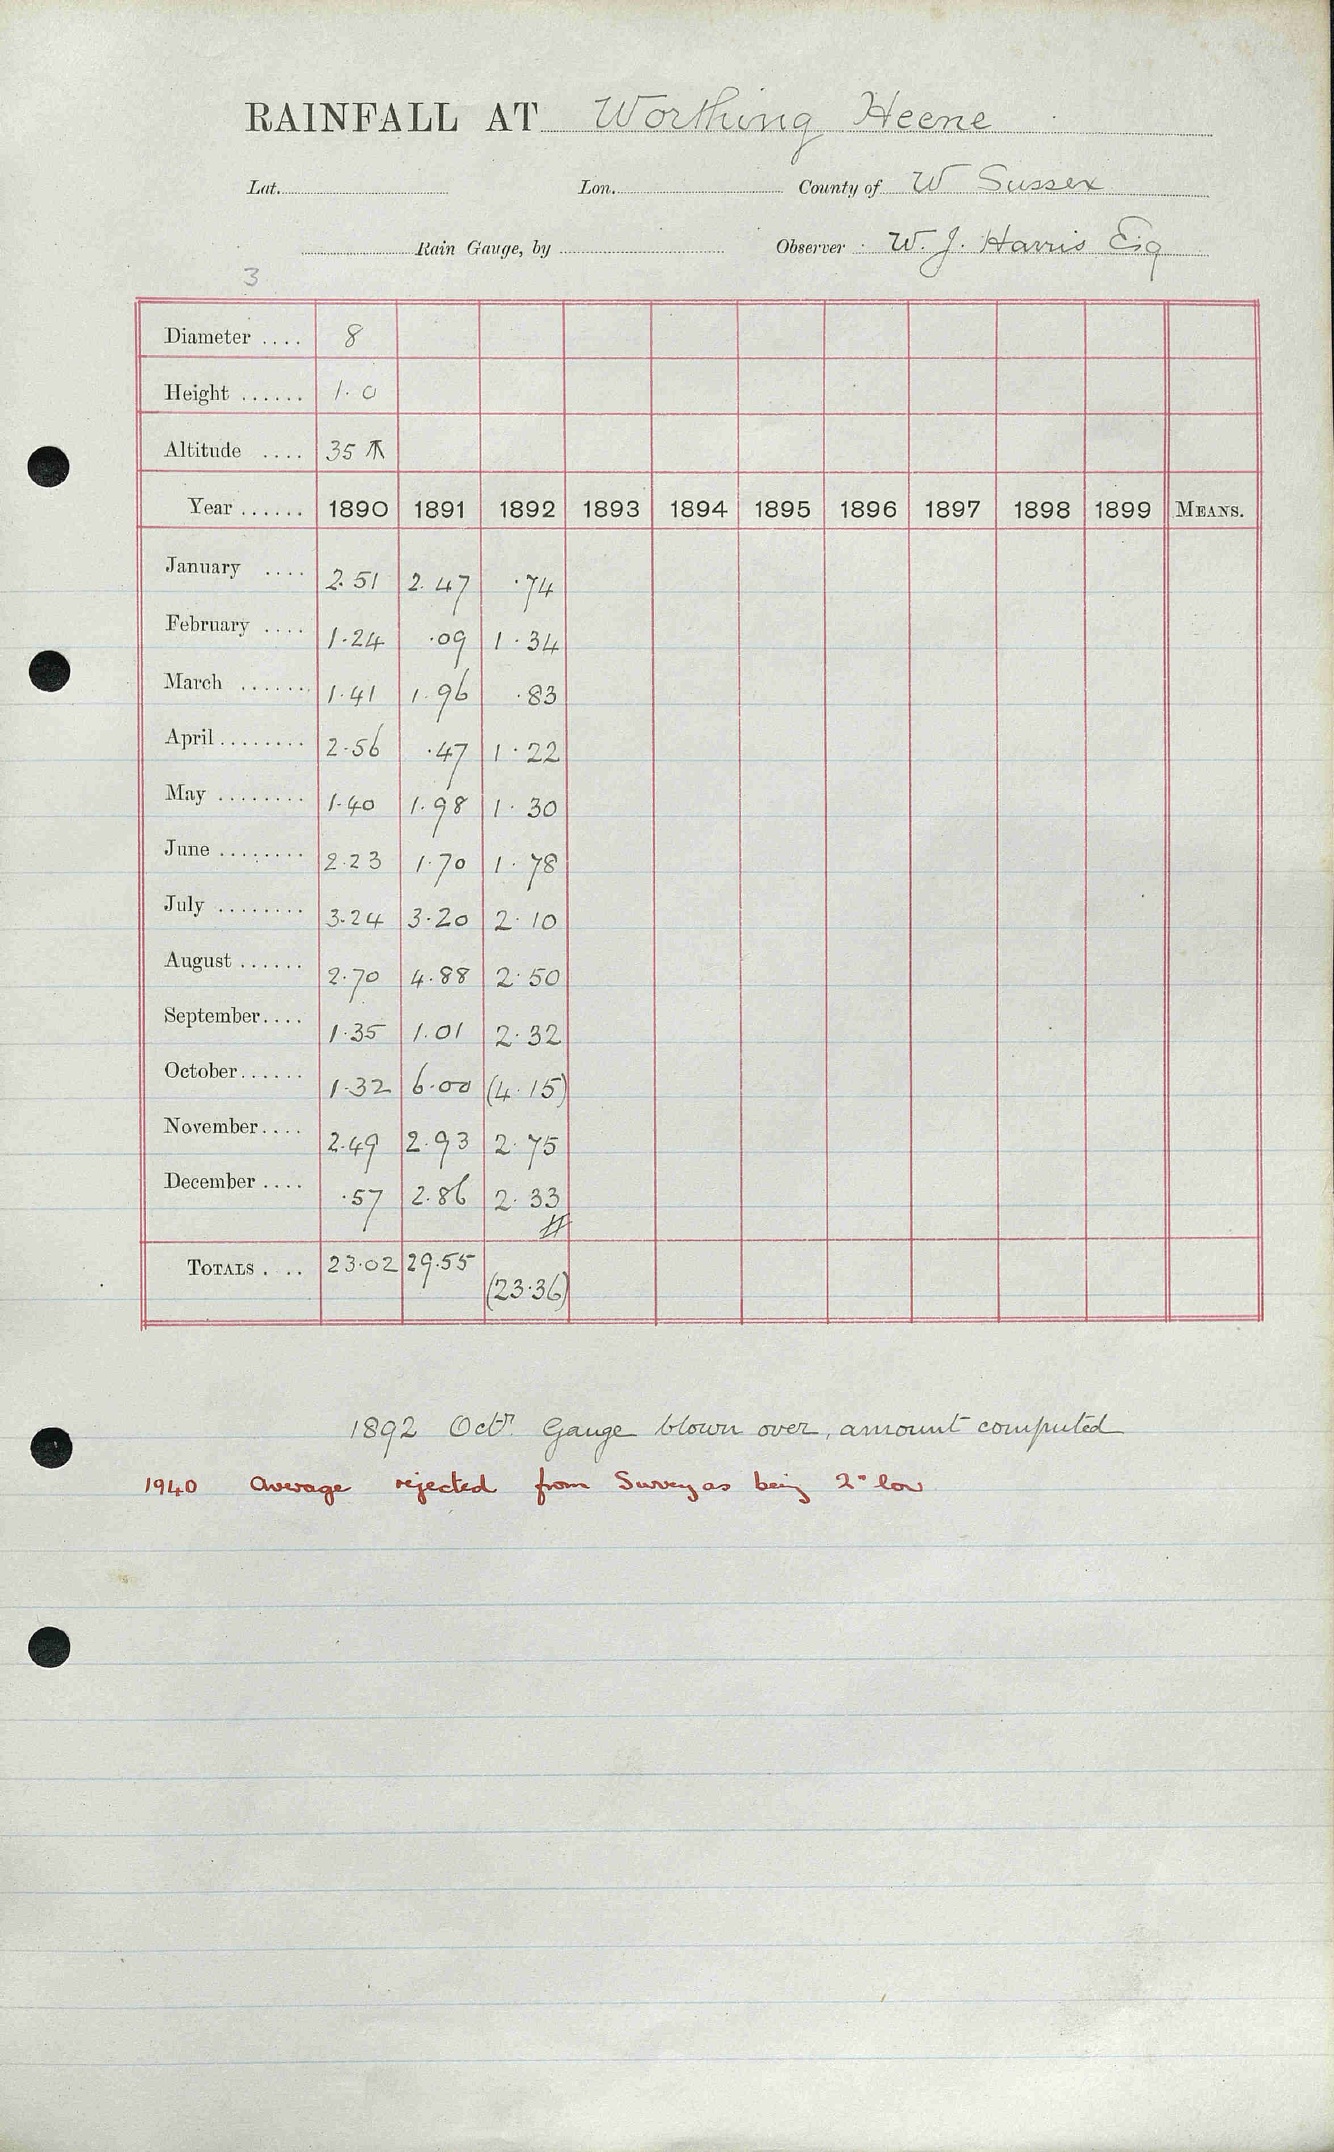 RAINFALL AT Worthing Heene
Lat. Lon. County of W Sussex
Rain Gauge, by Observer W. J. Harris Esq
3
Diameter .... 8
Height ...... 1.0
Altitude .... 35
Year ...... 1890 1891 1892 1893 1894 1895 1896 1897 1898 1899 MEANS.
January .... 2.51 2.47 .74
February .... 1.24 .09 1.34
March ....... 1.41 1.96 .83
April ........ 2.56 .47 1.22
May ........ 1.40 1.98 1.30
June ........ 2.23 1.70 1.78
July ........ 3.24 3.20 2.10
August ...... 2.70 4.88 2.50
September.... 1.35 1.01 2.32
October...... 1.32 6.00 (4.15)
November.... 2.49 2.93 2.75
December .... .57 2.86 2.33
TOTALS . .. 23.02 29.55 (23.36)
1892 Octr. Gauge blown over, amount computed
1940 Average rejected from Survey as being 2" low